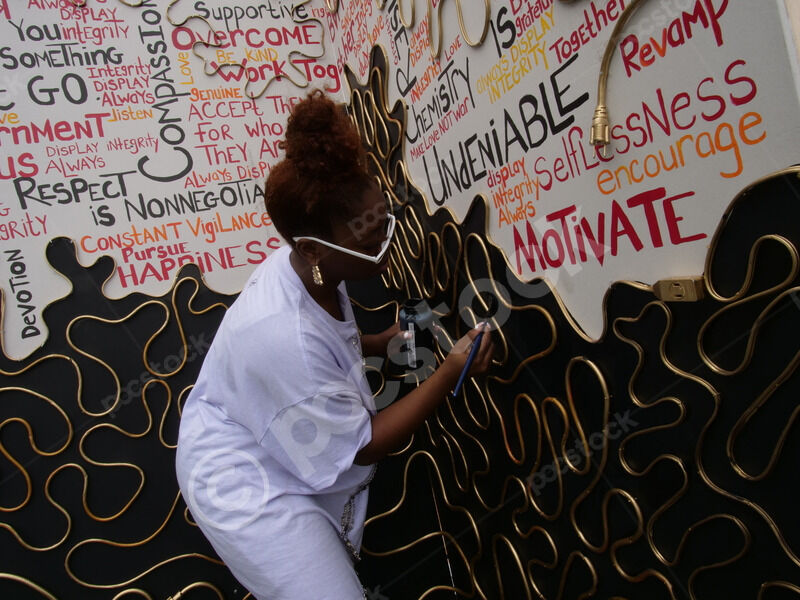 You Integrity
Something
Go
Integrity
Display
Always
Listen
Display
Always
Respect
is Nonnegotia
Compassion
Love
Supportive
Overcome
Be Kind
Work Tog
genuine
Accept The
for who
They Ar
Always Displ
Constant Vigilance
Pursue
Happiness
Devotion
Chemistry
Make Love Not War
is
display
grateful
always display
integrity
Together
Undeniable
display
integrity
Always
Selflessness
encourage
Motivate
Revamp
pocstock
©